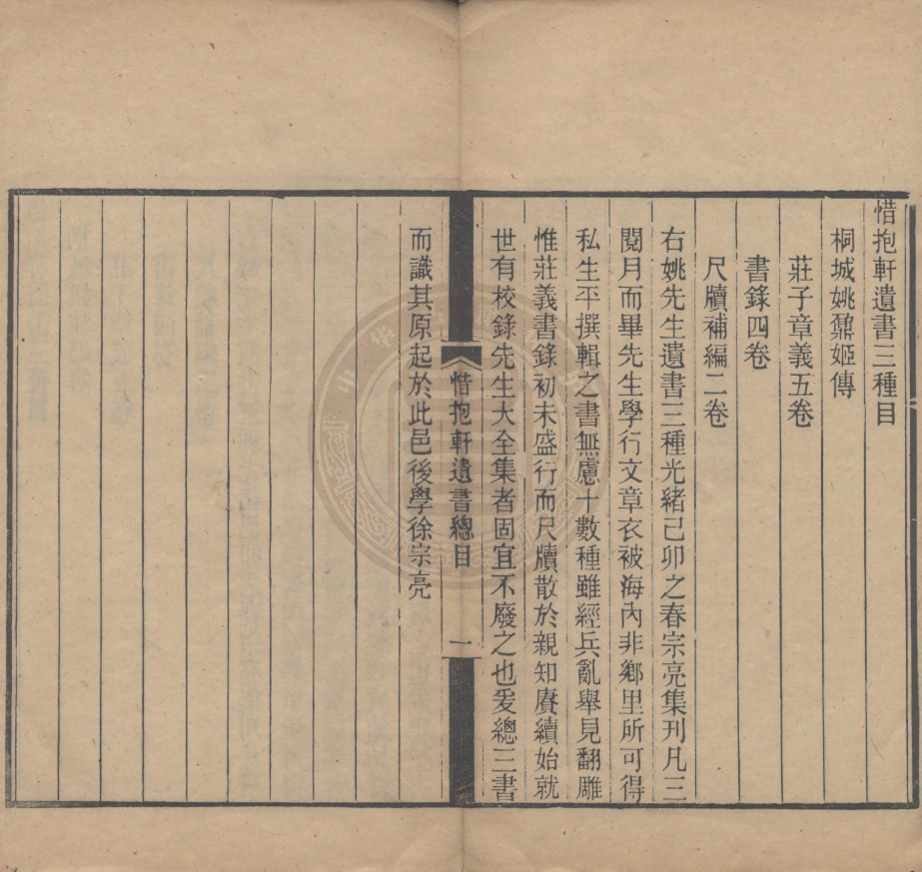 惜抱軒遺書三種目
桐城姚鼐姬傳
莊子章義五卷
書錄四卷
尺牘補編二卷
右姚先生遺書三種光緒己卯之春宗亮集刊凡三
閱月而畢先生學行文章衣被海內非鄉里所可得
私生平撰輯之書無慮十數種雖經兵亂舉見翻雕
惟莊義書錄初未盛行而尺牘散於親知賡續始就
世有校錄先生大全集者固宜不廢之也爰總三書
惜抱軒遺書總目
一
而識其原起於此邑後學徐宗亮